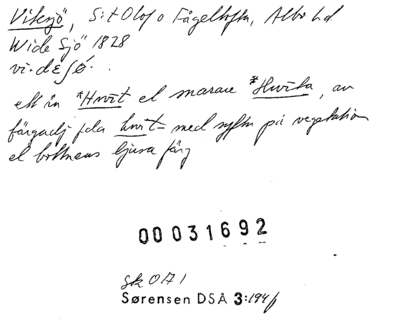 Viksjö, S:t Olof o Fågeltofta, Albo hd
Wide Sjö 1828
vi·desé·
ett ån *Hvit el snarare *Hvita, av
färgadj fda hvit- med syftn på vegetation
el bottnens ljusa färg
00031692
gk OA 1
Sørensen DSA 3:194f